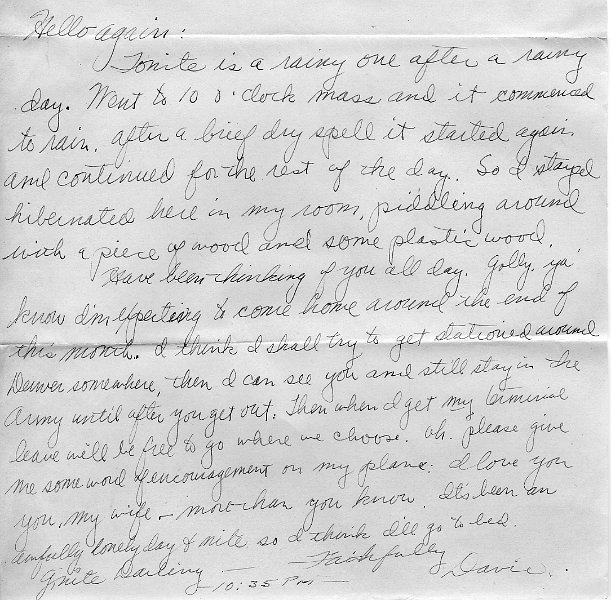 Hello again:
Tonite is a rainy one after a rainy
day. Went to 10 o'clock mass and it commenced
to rain. after a brief dry spell it started again
and continued for the rest of the day. So I stayed
hibernated here in my room, piddling around
with a piece of wood and some plastic wood.
Have been thinking of you all day. Golly, ya'
know I'm expecting to come home around the end of
this month. I think I shall try to get stationed around
Denver somewhere, then I can see you and still stay in the
Army until after you get out. Then when I get my terminal
leave will be free to go where we choose. Oh. please give
me some word of encouragement on my plans. I love you
you, my wife - more than you know. It's been an
awfully lonely day & nite so I think I'll go to bed.
G'nite Darling — Faithfully
—10:35 PM— Davie.